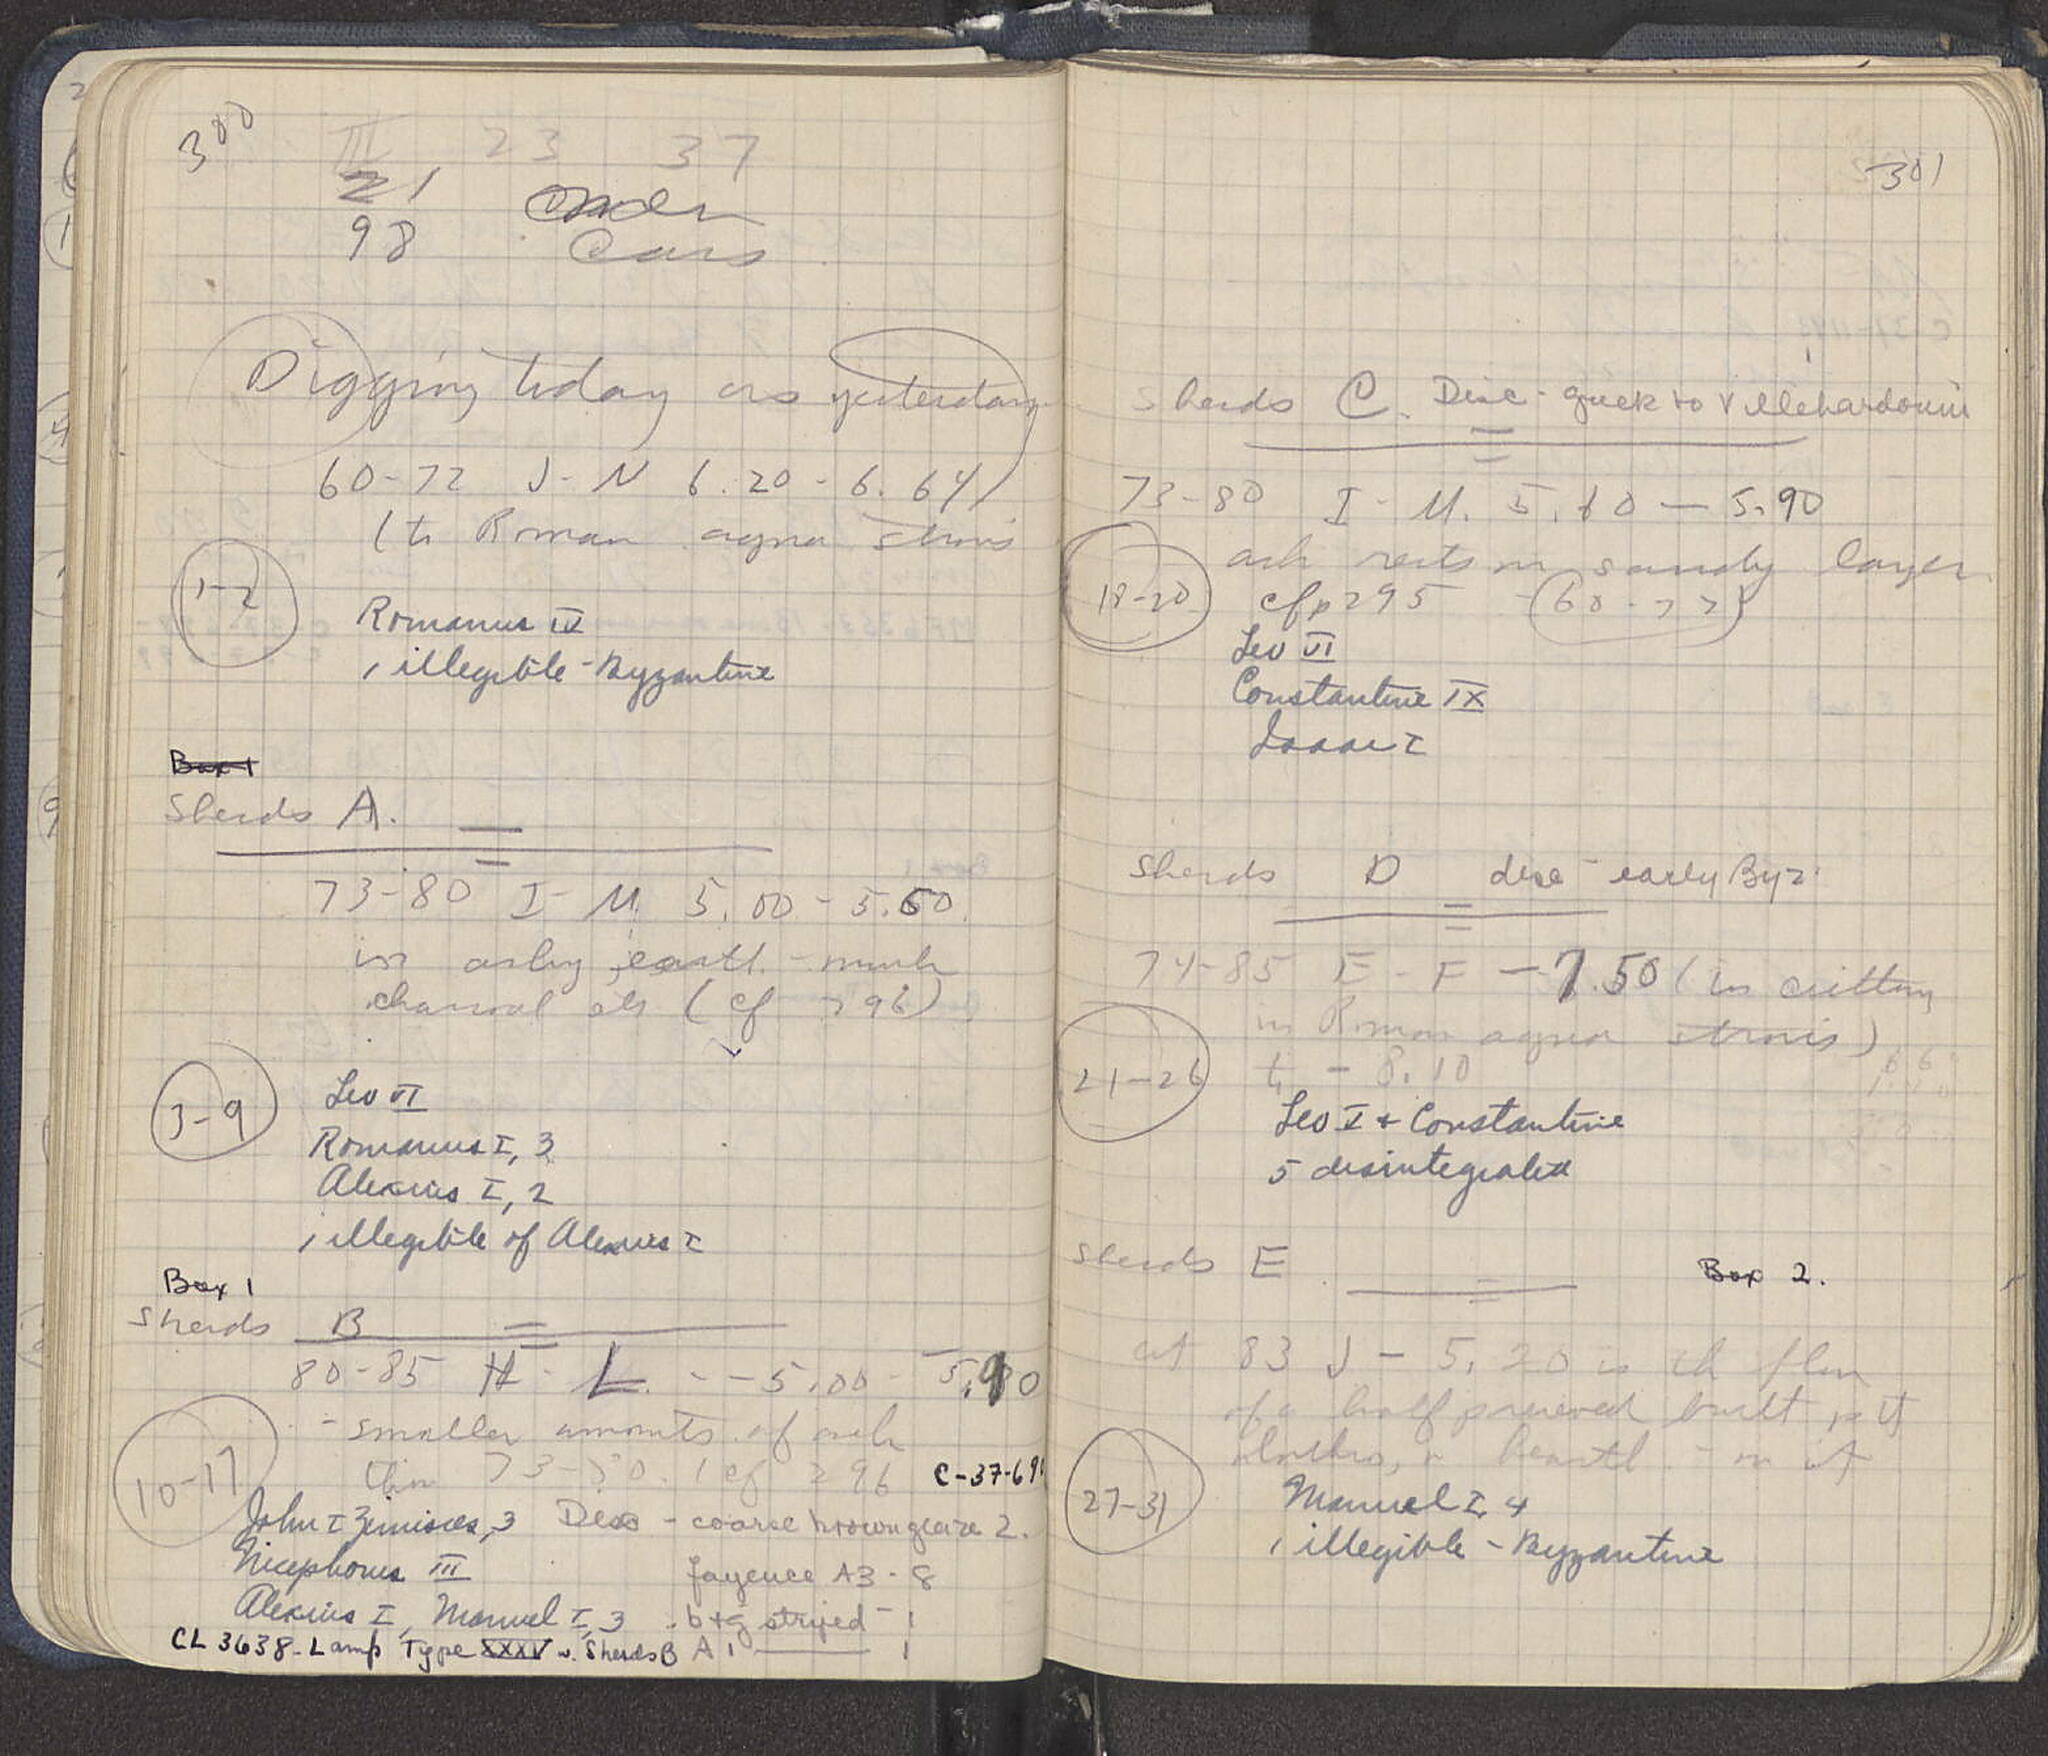 300
III 23 37
21 men
98 Cars
Digging today as yesterday
60-72 J-N 6.20-6.64
(to Roman agora strosis
1-2
Romanus IV
1 illegible - Byzantine
Box 1
Sherds A.
73-80 I-M. 5.00-5.60.
in ashy earth - much
charcoal etc (cf 296)
3-9
Leo VI
Romanus I, 3
Alexius I, 2
1 illegible of Alexius I
Box 1
Sherds B
80-85 H-L. - -5.00 - 5.90
- smaller amounts of ash
than 73-80. (cf 296 C-37-69
10-17
John I Zimisces, 3 Disc - coarse brown glaze 2.
Nicephorus III fayence A3 - 8
Alexius I, Manuel I, 3 b+g striped - 1
CL 3638 - Lamp Type XXXV w. Sherds B A 1 — 1
301
Sherds C. Disc - Greek to Villehardouin
73-80 I-M. 5.60 — 5.90
ash rests on sandy layer
18-20 cf p 295 (60-72)
Leo VI
Constantine IX
Isaac I
Sherds D disc - early Byz.
74-85 E-F - 7.50 (in cutting
in Roman agora strosis)
21-26 to - 8.10
Leo I + Constantine
5 disintegrated
Sherds E Box 2.
at 83 J - 5.20 is the floor
of a half preserved built pit
or hearth - on it
27-31
Manuel I, 4
1 illegible - Byzantine